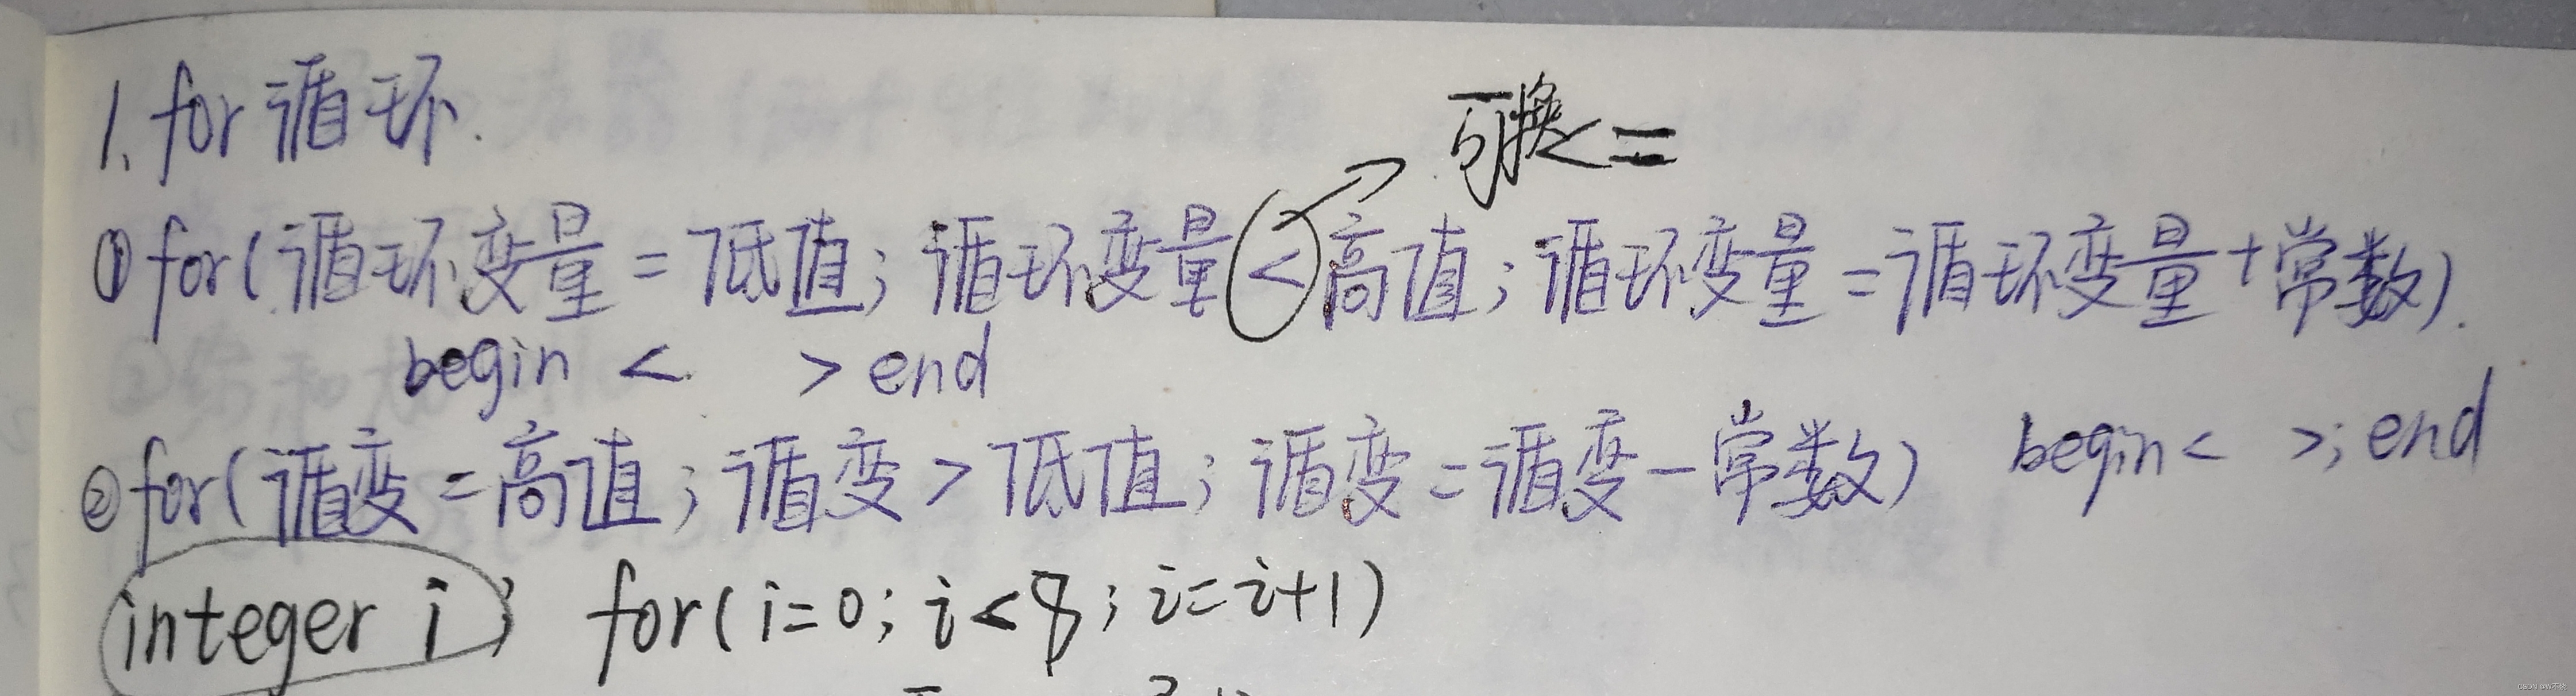 1. for 循环.
可换<=
① for(循环变量=低值; 循环变量<高值; 循环变量=循环变量+常数).
begin < > end
② for(循变=高值; 循变>低值; 循变=循变-常数) begin< >; end
integer i; for(i=0; i<8; i=i+1)